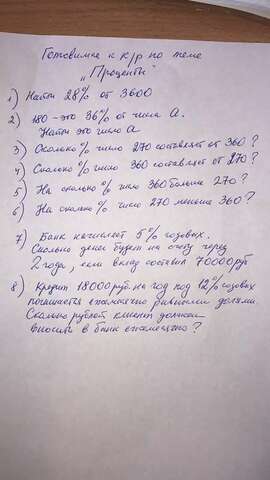 Готовимся к к/р по теме
"Проценты"
1) Найти 28% от 3600
2) 180 - это 36% от числа А.
Найти это число А
3) Сколько % число 270 составляет от 360?
4) Сколько % число 360 составляет от 270?
5) На сколько % число 360 больше 270?
6) На сколько % число 270 меньше 360?
7) Банк начисляет 5% годовых.
Сколько денег будет на счету через
2 года, если вклад составил 70000 руб
8) Кредит 18000 руб. на год под 12% годовых
погашается ежемесячно равными долями.
Сколько рублей клиент должен
вносить в банк ежемесячно?